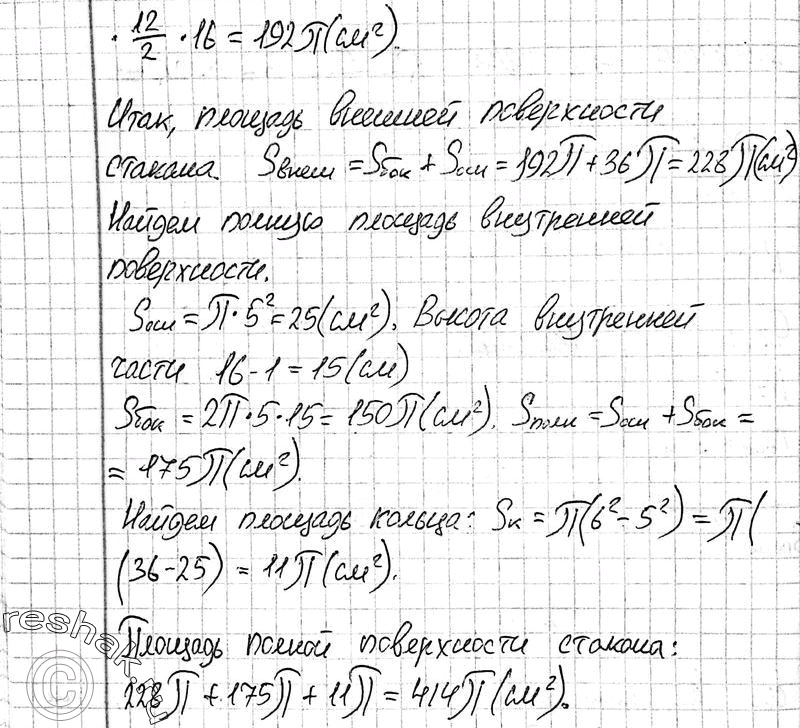 · 12/2 · 16 = 192π (см²).
Итак, площадь внешней поверхности
стакана. Sвнеш = Sбок + Sосн = 192π + 36π = 228π (см²)
Найдем полную площадь внутренней
поверхности.
Sосн = π · 5² = 25 (см²). Высота внутренней
части 16 - 1 = 15 (см)
Sбок = 2π · 5 · 15 = 150π (см²). Sполн = Sосн + Sбок =
= 175π (см²).
Найдем площадь кольца: Sк = π(6² - 5²) = π(
(36 - 25) = 11π (см²).
Площадь полной поверхности стакана:
228π + 175π + 11π = 414π (см²).
reshak.ru
©